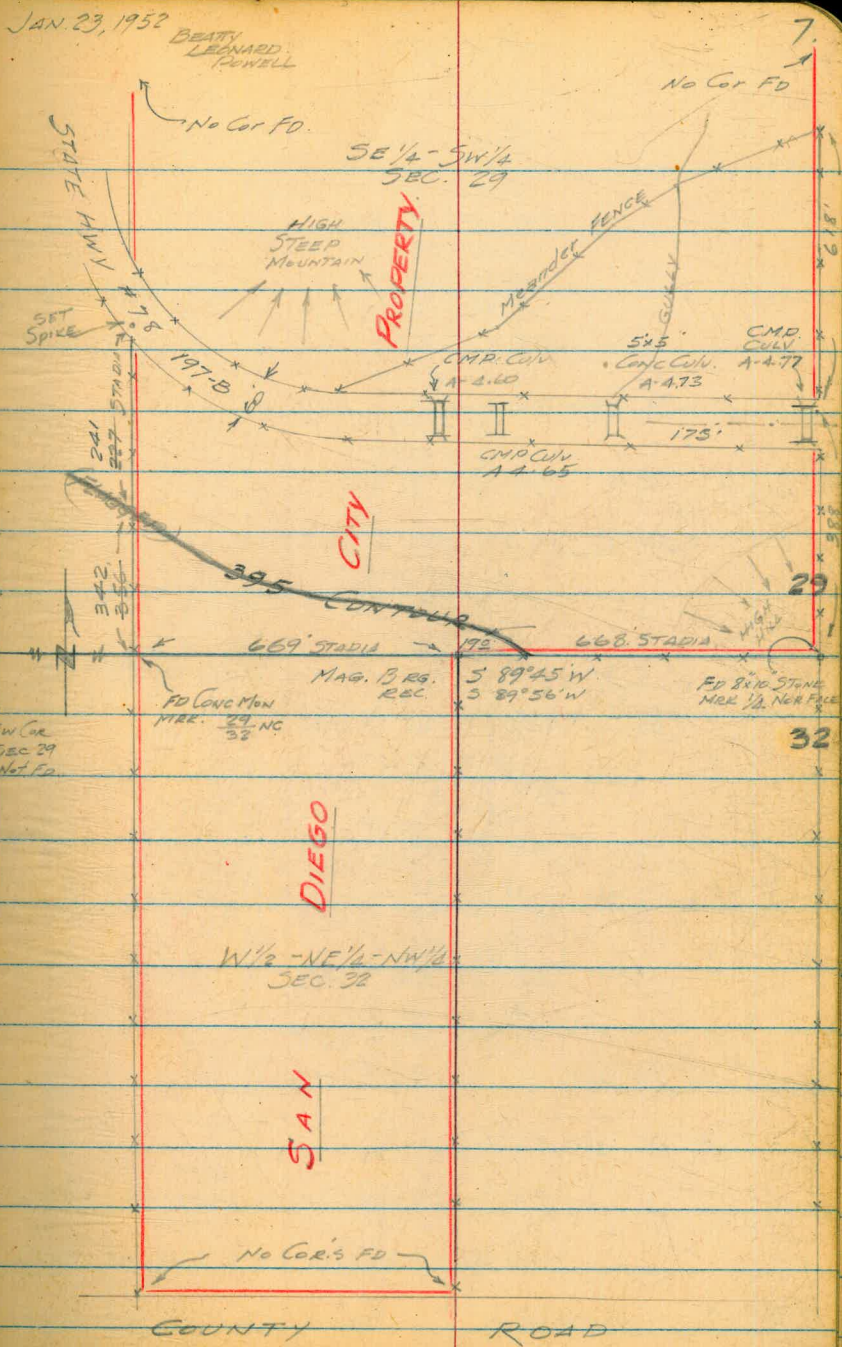 JAN. 23, 1952
BEATTY
LEONARD
POWELL
7.
No Cor FD.
No Cor FD
STATE HWY
SE 1/4 - SW 1/4
SEC. 29
HIGH
STEEP
MOUNTAIN
PROPERTY
Meander FENCE
GULLY
618'
SET
SPIKE
# 78
197-B
C.M.P. Culv
A-4.60
5'x5'
Conc Culv.
A-4.73
C.M.P.
CULV
A-4.77
175'
CMP Culv
A 4.65
241
227 STADIA
342
356
CITY
395 CONTOUR
388
HIGH
HILL
29
N
669' STADIA
668' STADIA
MAG. BRG. S 89°45' W
REC. S 89°56' W
FD CONC MON
MRK. 29/32 NC
FD 8"x10" STONE
MRK 1/4 NOR FACE
32
W COR
SEC 29
NOT FD.
DIEGO
W 1/2 - NE 1/4 - NW 1/4
SEC. 32
SAN
NO COR'S FD
COUNTY ROAD